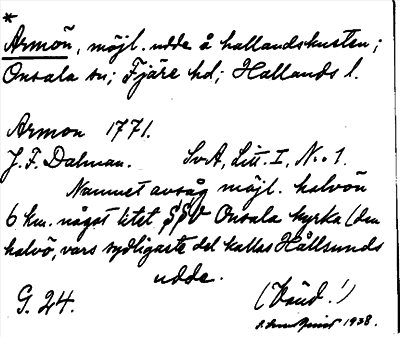 *
Armön, möjl. udde å hallandskusten;
Onsala sn; Fjäre hd; Hallands l.
Armon 1771.
J. F. Dalman. SvA, Litt. I, No. 1.
Namnet avsåg möjl. halvön
6 km. något litet SSV Onsala kyrka (den
halvö, vars sydligaste del kallas Hållsunds
udde.
G. 24. (Vänd!)
1938.